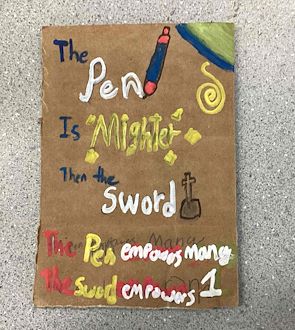 The
Pen
Is "Mighter"
Then the
Sword
The Pen empowers many
The Sword empowers 1